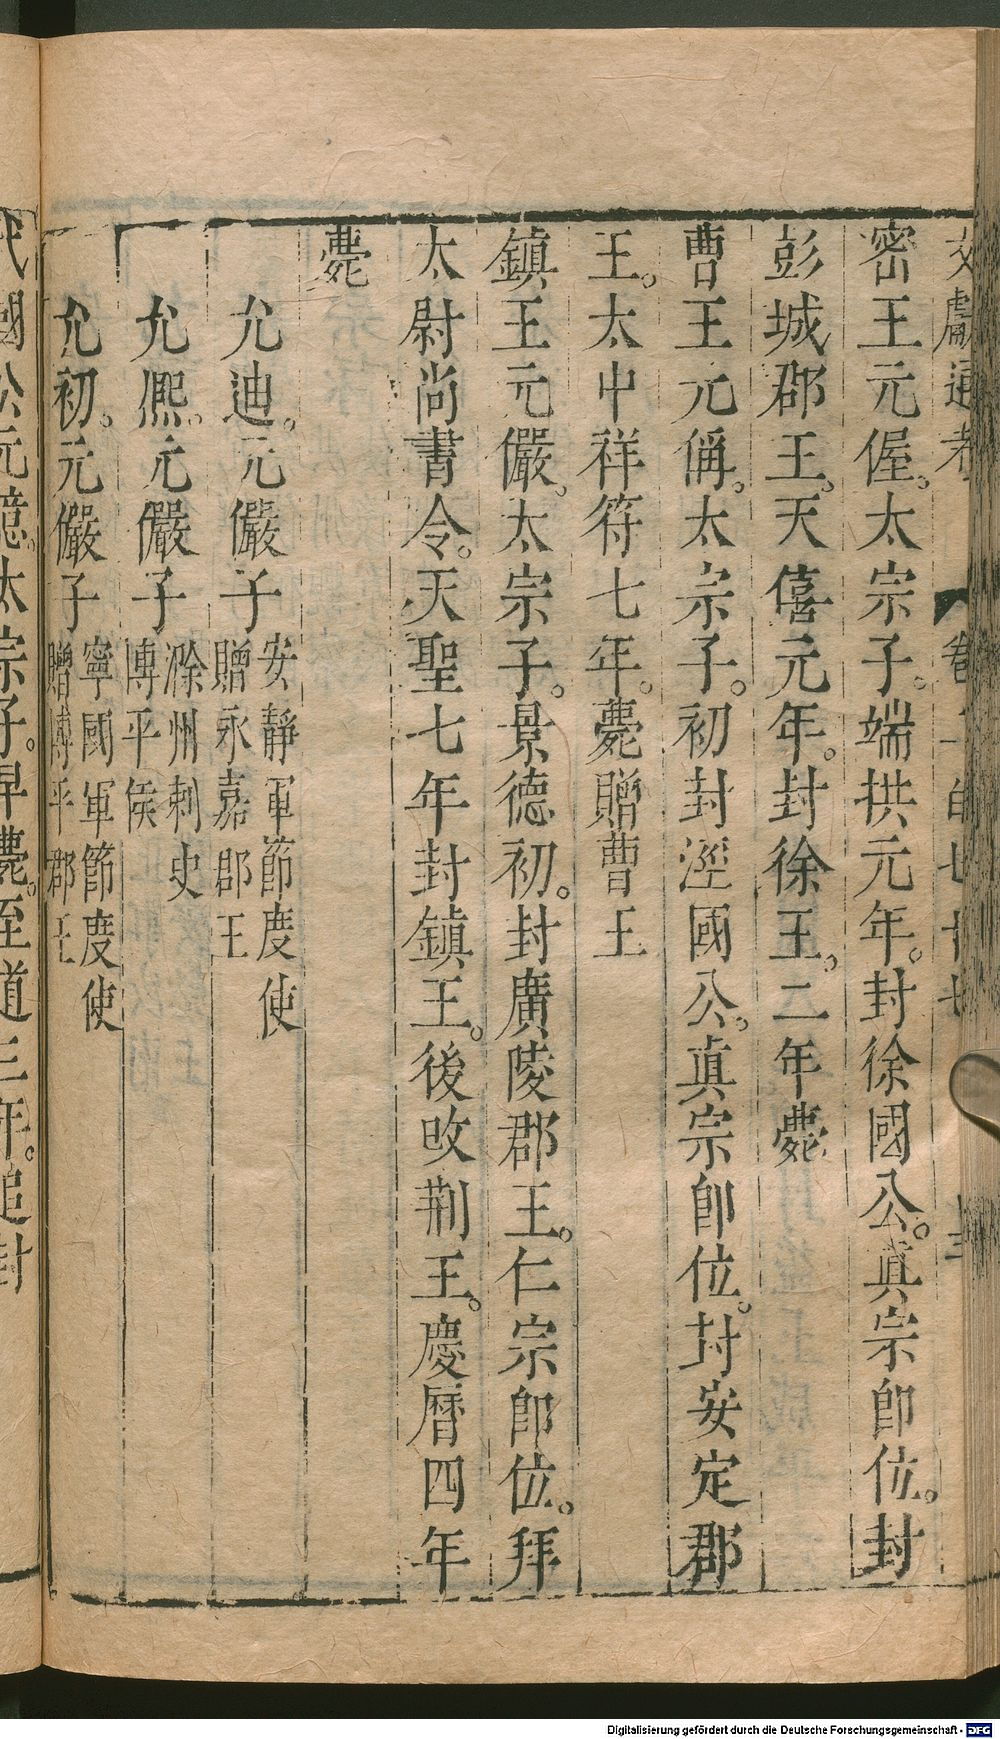 文獻通考　卷二百七十七　十三
密王元偓。太宗子。端拱元年。封徐國公。真宗卽位。封
彭城郡王。天僖元年。封徐王。二年薨
曹王元偁。太宗子。初封涇國公。真宗卽位。封安定郡
王。太中祥符七年。薨贈曹王
鎮王元儼。太宗子。景德初。封廣陵郡王。仁宗卽位。拜
太尉尚書令。天聖七年封鎮王。後改荆王。慶曆四年
薨
允迪。元儼子安靜軍節度使
贈永嘉郡王
允熈。元儼子滁州刺史
博平侯
允初。元儼子寧國軍節度使
贈博平郡王
代國公元億。太宗子。早薨。至道三年。追封
Digitalisierung gefördert durch die Deutsche Forschungsgemeinschaft - DFG